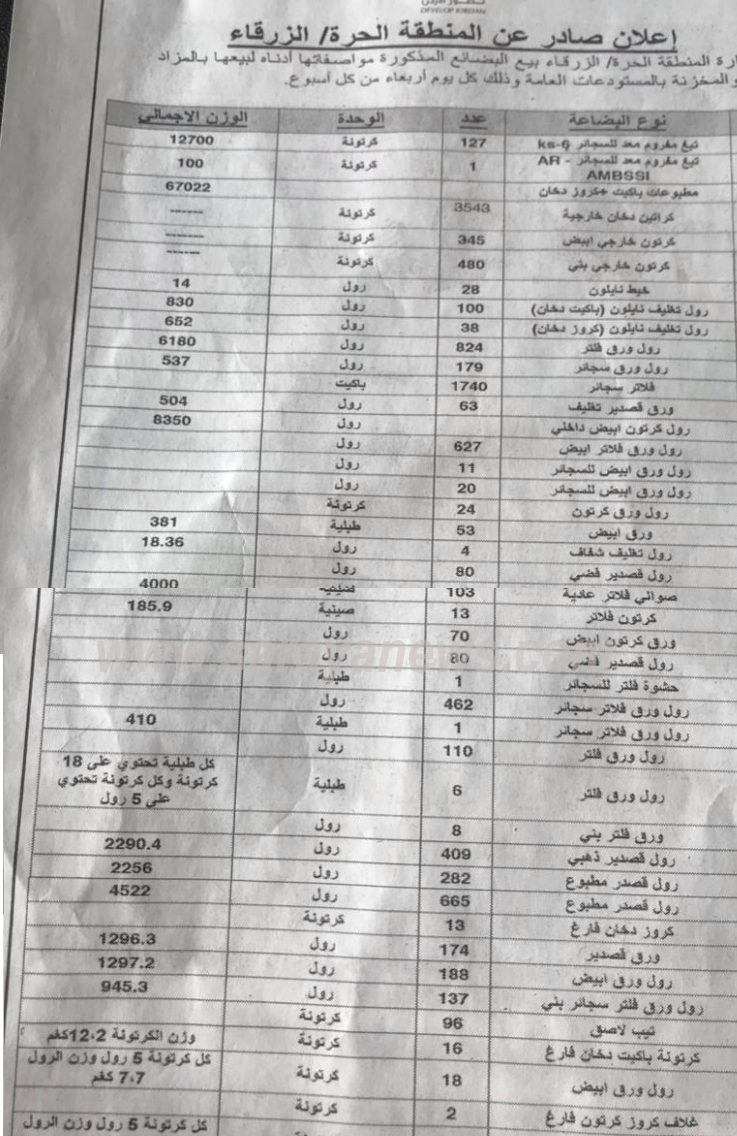 DEVELOP JORDAN
إعلان صادر عن المنطقة الحرة/ الزرقاء
المنطقة الحرة/ الزرقاء بيع البضائع المذكورة مواصفاتها أدناه لبيعها بالمزاد
المخزنة بالمستودعات العامة وذلك كل يوم أربعاء من كل أسبوع.
نوع البضاعة عدد الوحدة الوزن الاجمالي
تبغ مفروم معد للسجائر ks-6 127 كرتونة 12700
تبغ مفروم معد للسجائر - AR 1 كرتونة 100
AMBSSI
مطبوعات باكيت +كروز دخان 67022
كراتين دخان خارجية 3543 كرتونة ------
كرتون خارجي ابيض 345 كرتونة -------
كرتون خارجي بني 480 كرتونة ------
خيط نايلون 28 رول 14
رول تغليف نايلون (باكيت دخان) 100 رول 830
رول تغليف نايلون (كروز دخان) 38 رول 652
رول ورق فلتر 824 رول 6180
رول ورق سجائر 179 رول 537
فلاتر سجائر 1740 باكيت
ورق قصدير تغليف 63 رول 504
رول كرتون ابيض داخلي رول 8350
رول ورق فلاتر ابيض 627 رول
رول ورق ابيض للسجائر 11 رول
رول ورق ابيض للسجائر 20 رول
رول ورق كرتون 24 كرتونة
ورق ابيض 53 طبلية 381
رول تغليف شفاف 4 رول 18.36
رول قصدير فضي 80 رول
صواني فلاتر عادية 103 4000
كرتون فلاتر 13 صينية 185.9
ورق كرتون ابيض 70 رول
رول قصدير فضي 80 رول
حشوة فلتر للسجائر 1 طبلية
رول ورق فلاتر سجائر 462 رول
رول ورق فلاتر سجائر 1 طبلية 410
رول ورق فلتر 110 رول
رول ورق فلتر 6 طبلية كل طبلية تحتوي على 18
كرتونة وكل كرتونة تحتوي
على 5 رول
ورق فلتر بني 8 رول
رول قصدير ذهبي 409 رول 2290.4
رول قصدر مطبوع 282 رول 2256
رول قصدر مطبوع 665 رول 4522
كروز دخان فارغ 13 كرتونة
ورق قصدير 174 رول 1296.3
رول ورق ابيض 188 رول 1297.2
رول ورق فلتر سجائر بني 137 رول 945.3
تيب لاصق 96 كرتونة
كرتونة باكيت دخان فارغ 16 كرتونة وزن الكرتونة 12.2كغم
رول ورق ابيض 18 كرتونة كل كرتونة 5 رول وزن الرول
7.7 كغم
غلاف كروز كرتون فارغ 2 كرتونة
كل كرتونة 5 رول وزن الرول